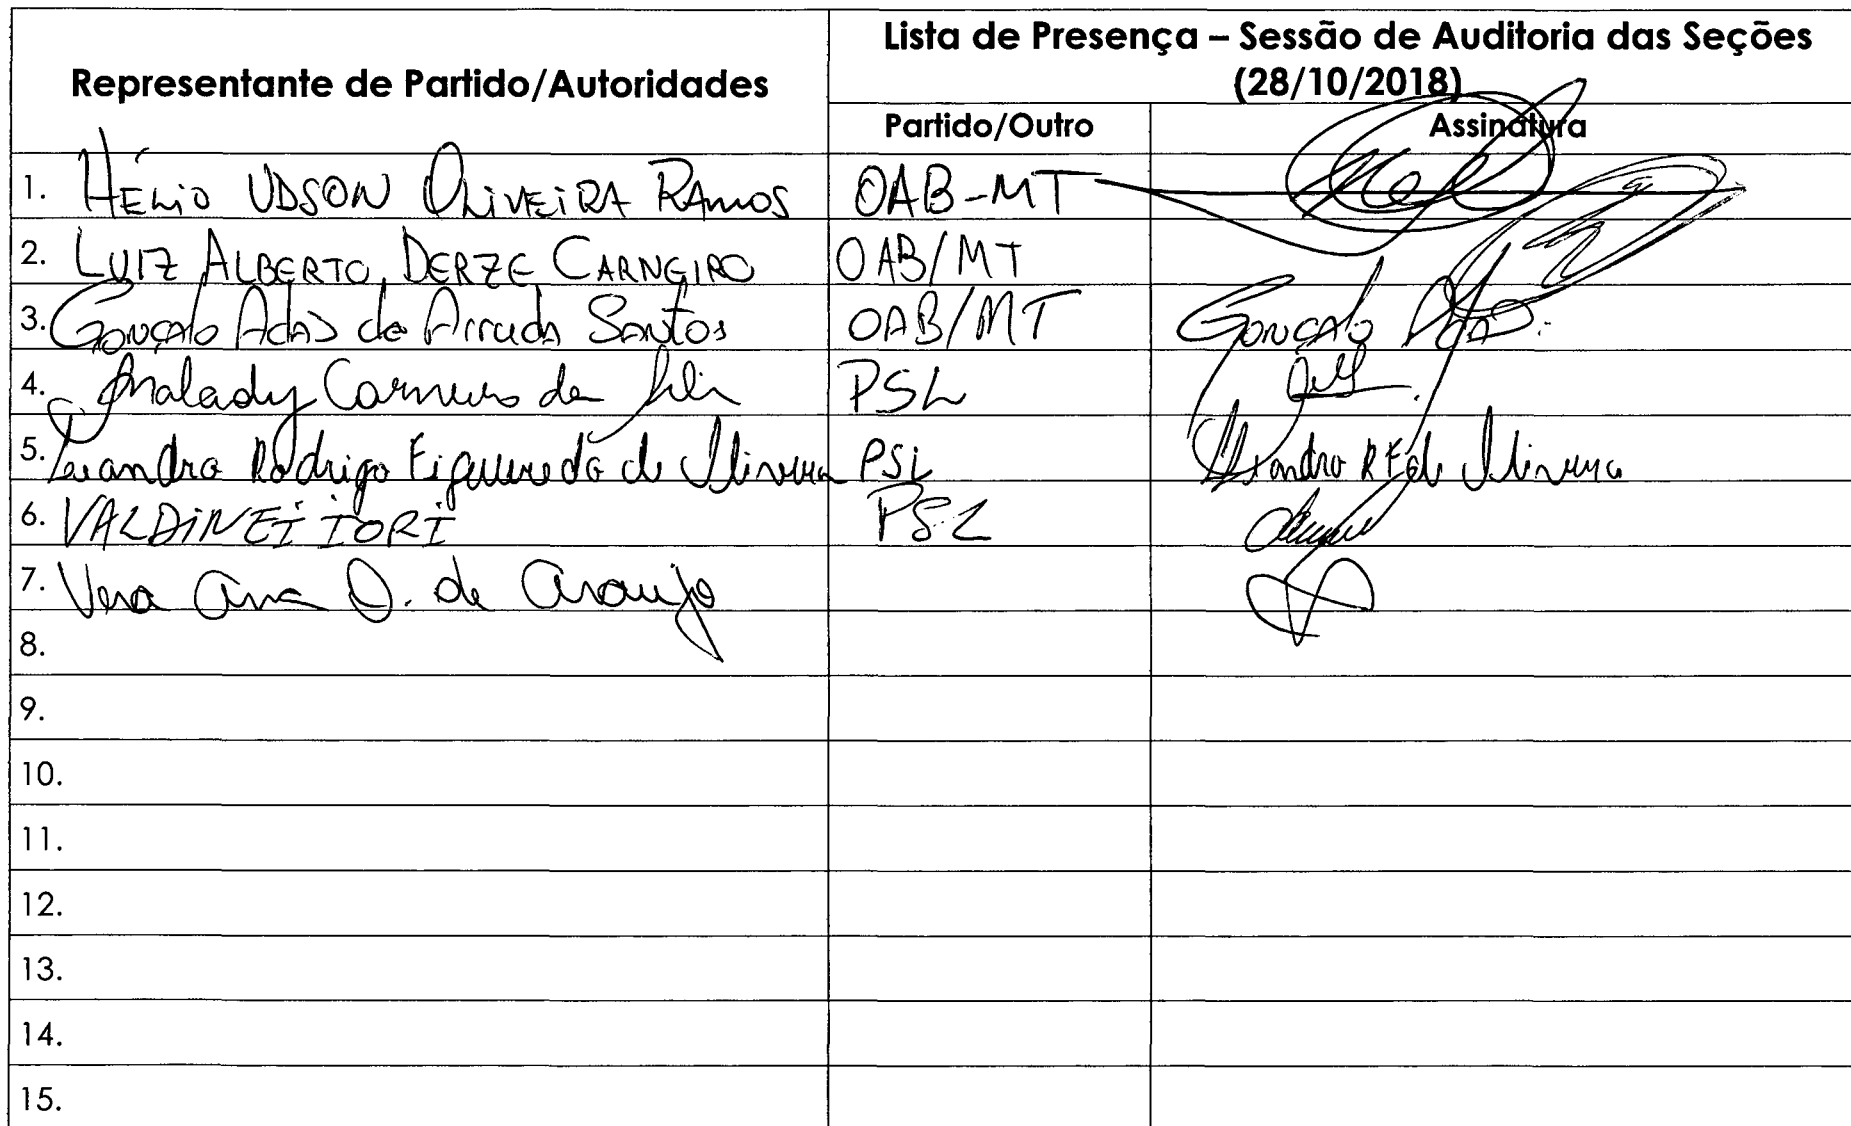 Representante de Partido/Autoridades
Lista de Presença – Sessão de Auditoria das Seções
(28/10/2018)
Partido/Outro Assinatura
1. HÉLIO UDSON OLIVEIRA RAMOS OAB-MT
2. LUIZ ALBERTO DERZE CARNEIRO OAB/MT
3. Gonçalo Adão de Arruda Santos OAB/MT Gonçalo
4. Carneiro da PSL
5. Leandro Rodrigo Figueiredo de Oliveira PSL Leandro R F de Oliveira
6. VALDINEI IORI PSL
7. Vera Ana D. de Araujo
8.
9.
10.
11.
12.
13.
14.
15.